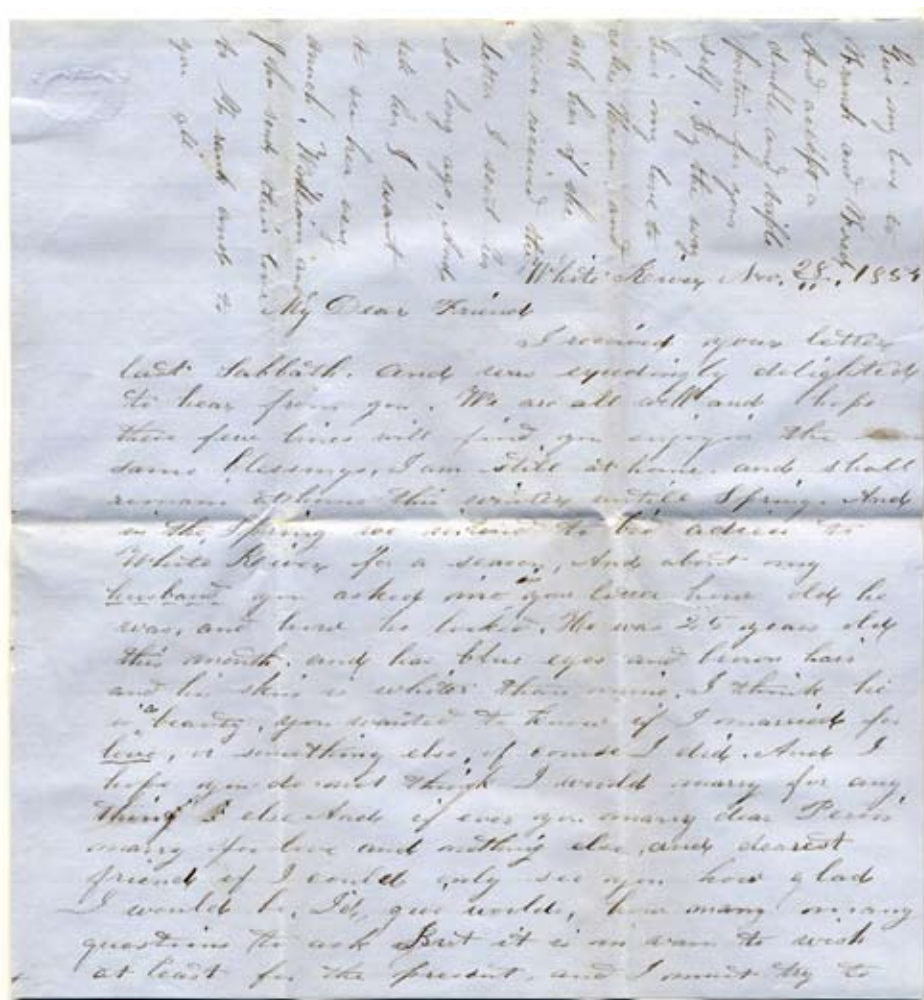 White River Nov. 28, 185
My Dear Friend
I received your letter
last Sabbath. And was equdingly delighted
to hear from you. We are all well and hope
these few lines will find you enjoyin the
same blessings. I am still at home and shall
remain at home this winter untill Spring. And
in the Spring we intend to to
White River for a season, And about my
husband you asked me you how old he
was, and how he looked. He was 25 years old
this month, and has blue eyes and brown hair
and his skin is whiter than mine. I think he
is a beauty, you wanted to know if I married for
love, or something else, of course I did. And I
hope you do not think I would marry for any
thing else And if ever you marry dear
marry for love and nothing else, and dearest
friend if I could only see you how glad
I would be, I'd, give worlds, how many many
questions to ask But it is in vain to wish
at least for the present, and I must try to
Give my love to
Frank and
And accept a
double and
portion for your
self, By the way
Give my love to
and
ask her if she
never received the
letter I sent her
so long ago, And
tell her I want
to see her very
much, William and
John send their love
to and to
you all